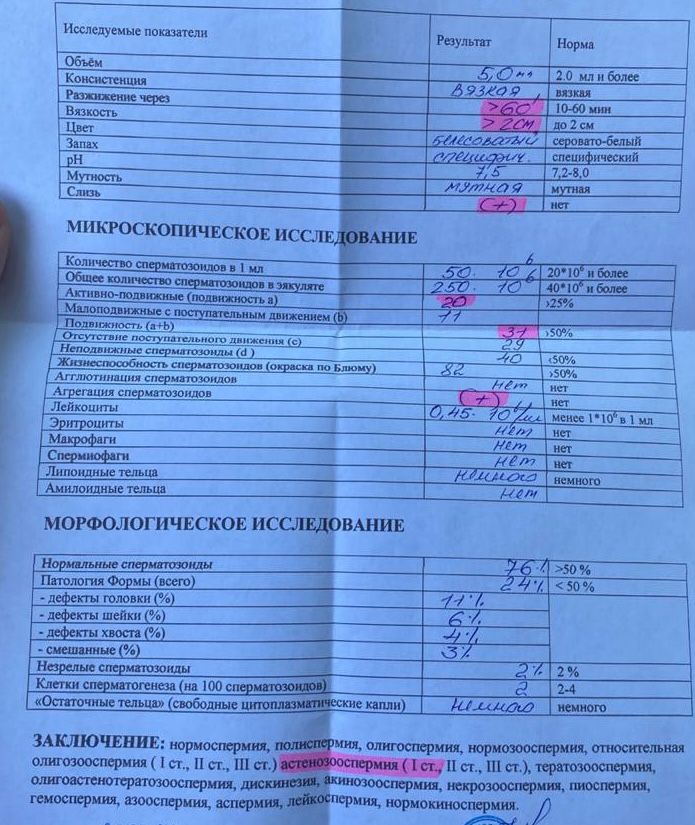 Исследуемые показатели Результат Норма
Объём 5,0 мл 2.0 мл и более
Консистенция вязкая вязкая
Разжижение через >60' 10-60 мин
Вязкость >2см до 2 см
Цвет белесоватый серовато-белый
Запах специфич. специфический
pH 7,5 7,2-8,0
Мутность мутная мутная
Слизь (+) нет
МИКРОСКОПИЧЕСКОЕ ИССЛЕДОВАНИЕ
Количество сперматозоидов в 1 мл 50·10⁶ 20*10⁶ и более
Общее количество сперматозоидов в эякуляте 250·10⁶ 40*10⁶ и более
Активно-подвижные (подвижность а) 20 >25%
Малоподвижные с поступательным движением (b) 11
Подвижность (a+b) 31 >50%
Отсутствие поступательного движения (с) 29
Неподвижные сперматозоиды (d ) 40 <50%
Жизнеспособность сперматозоидов (окраска по Блюму) 82 >50%
Агглютинация сперматозоидов нет нет
Агрегация сперматозоидов (+) нет
Лейкоциты 0,45·10⁶/мл менее 1*10⁶ в 1 мл
Эритроциты нет нет
Макрофаги нет нет
Спермиофаги нет нет
Липоидные тельца немного немного
Амилоидные тельца нет
МОРФОЛОГИЧЕСКОЕ ИССЛЕДОВАНИЕ
Нормальные сперматозоиды 76% >50 %
Патология Формы (всего) 24% < 50 %
- дефекты головки (%) 11%
- дефекты шейки (%) 6%
- дефекты хвоста (%) 4%
- смешанные (%) 3%
Незрелые сперматозоиды 2% 2 %
Клетки сперматогенеза (на 100 сперматозоидов) 2 2-4
«Остаточные тельца» (свободные цитоплазматические капли) немного немного
ЗАКЛЮЧЕНИЕ: нормоспермия, полиспермия, олигоспермия, нормозооспермия, относительная
олигозооспермия ( I ст., II ст., III ст.) астенозооспермия ( I ст., II ст., III ст.), тератозооспермия,
олигоастенотератозооспермия, дискинезия, акинозооспермия, некрозооспермия, пиоспермия,
гемоспермия, азооспермия, аспермия, лейкоспермия, нормокиноспермия.